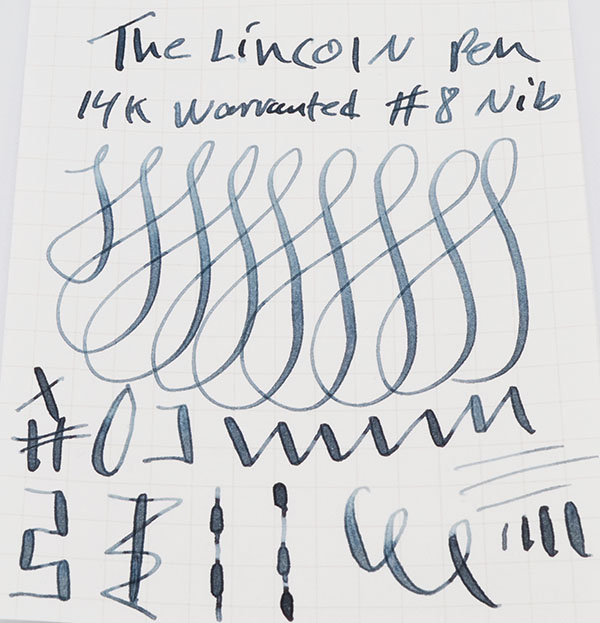 The Lincoln Pen
14K Warranted #8 Nib